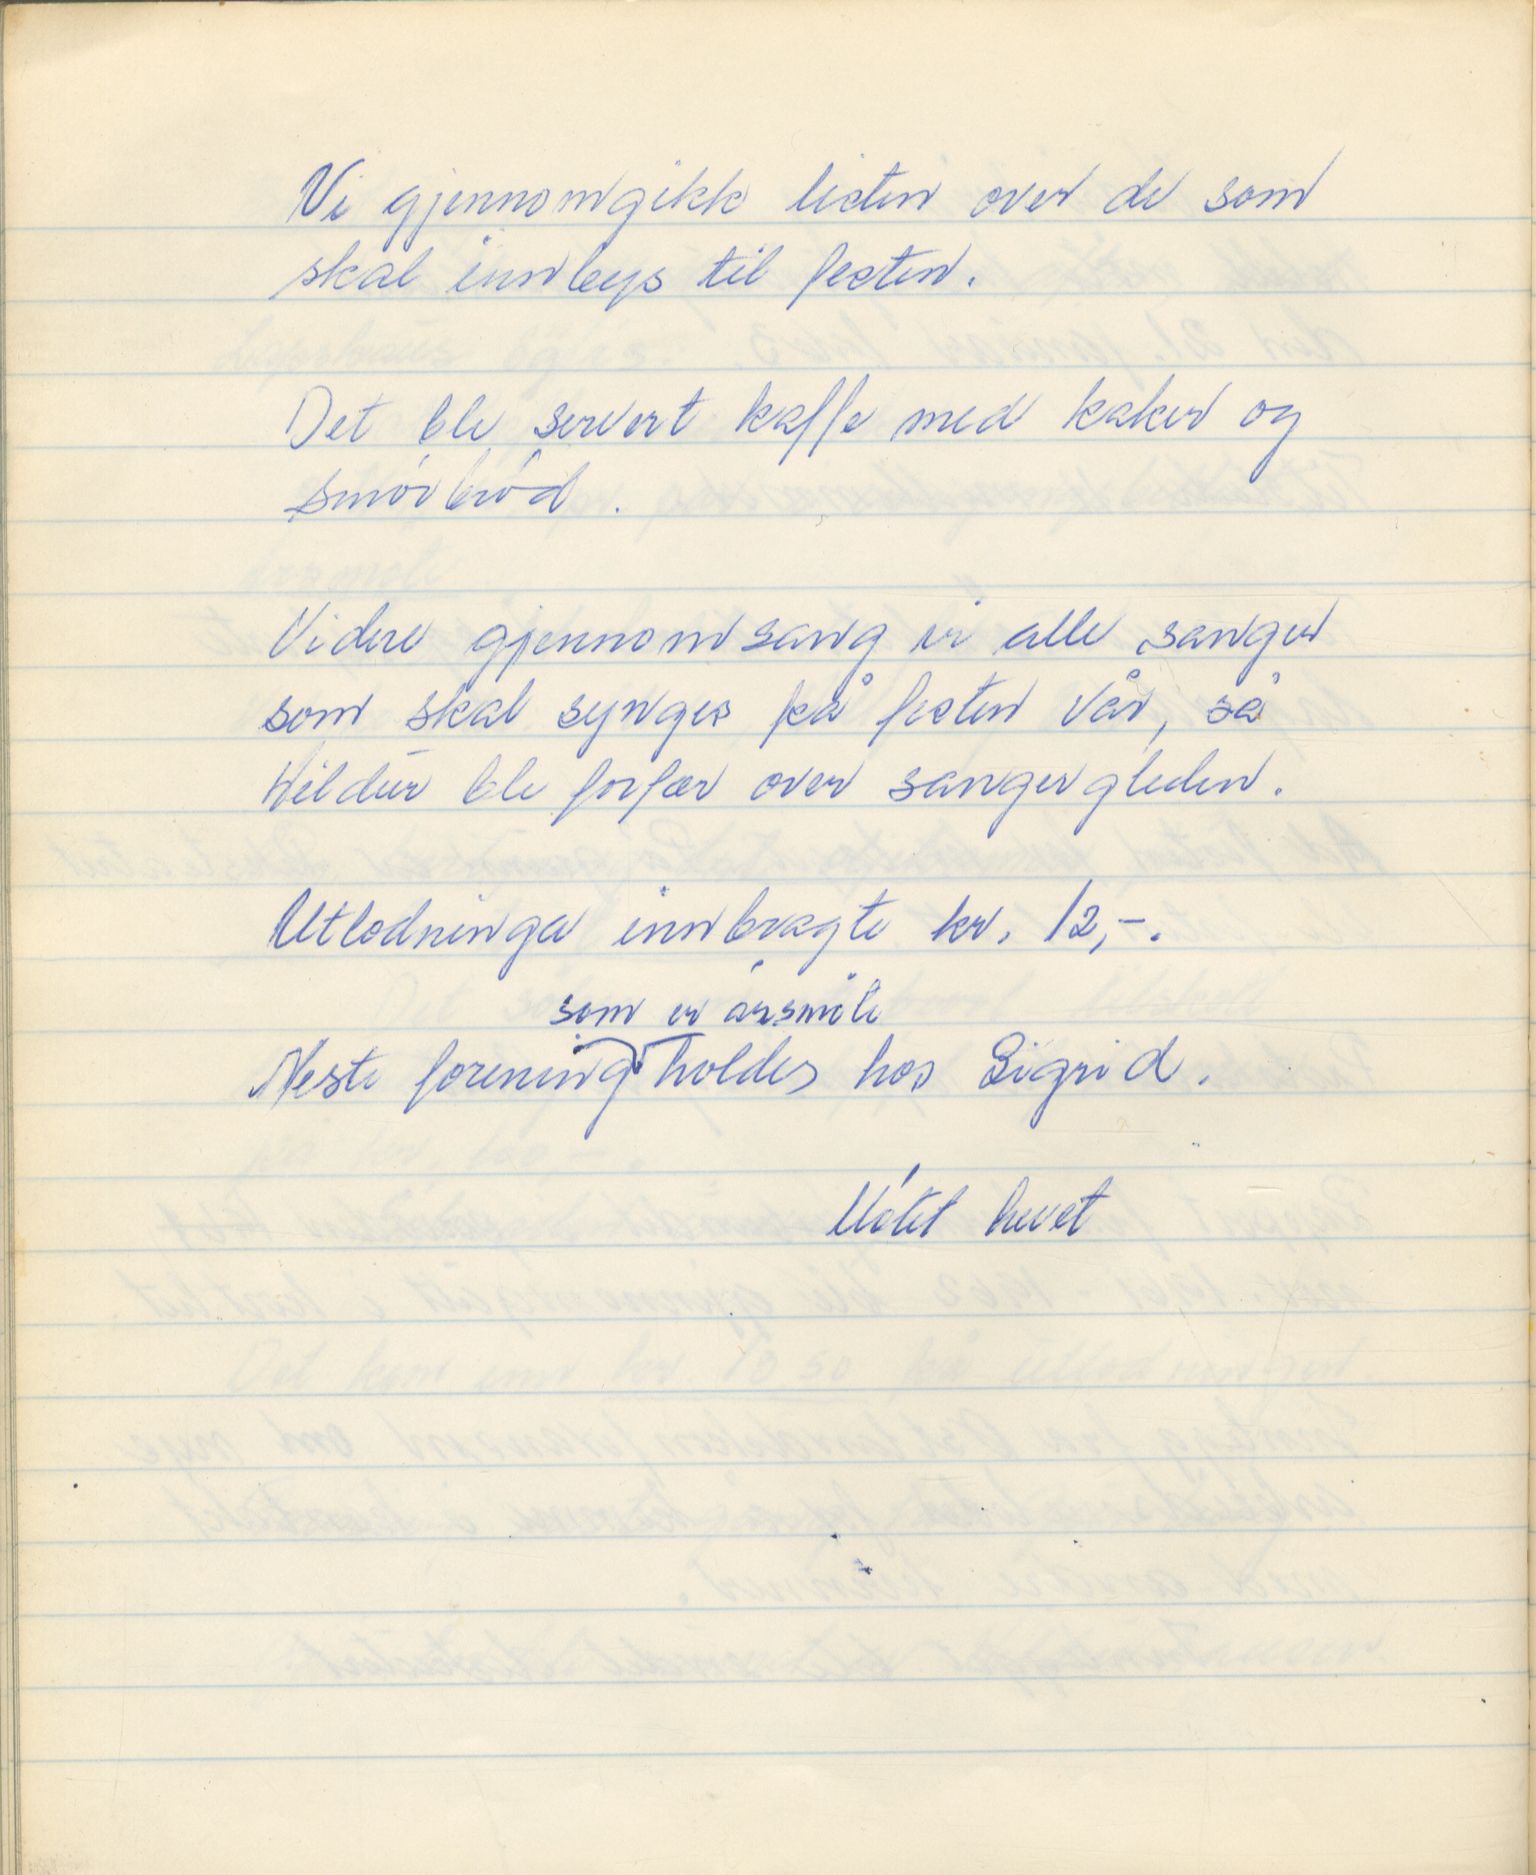 Vi gjennomgikk listen over de som
skal innbys til festen.
Det ble servert kaffe med kaker og
smörbröd.
Videre gjennomsang vi alle sanger
som skal synges på festen vår, så
Hildur ble forfær over sangergleden.
Utlodninga innbragte kr. 12,-.
som er årsmöte
Neste forening holdes hos Sigrid.
Mötet hevet